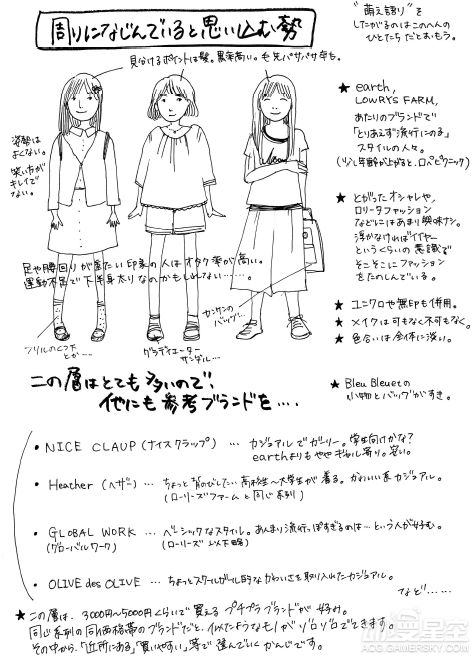 周りになじんでいると思い込む勢
見分けるポイントは髪。黒率高い。毛先パサパサ率も。
姿勢は
よくない。
笑い方が
キレイで
ない。
足や腰回りが重たい印象の人はオタク率が高い。
運動不足で下半身太りなのかもしれない……。
フリルのくつ下
とか…
グラディエーター
サンダル…
カンカンの
バッグ…
"萌え語り"を
したがるのはこのへんの
ひとたちだとおもう。
★ earth,
LOWRYS FARM,
あたりのブランドで
「とりあえず流行にのる」
スタイルの人々。
(少し年齢が上がると、ロペピクニック)
★ とがったオシャレや、
ロリータファッション
などにはあまり興味ナシ。
浮かなければイイヤー
というくらいの意識で
そこそこにファッション
をたのしんでいる。
★ ユニクロや無印も併用。
★ メイクは可もなく不可もなく。
★ 色合いは全体に淡い。
★ Bleu Bleuetの
小物とバッグがすき。
この層はとても多いので、
他にも参考ブランドを‥‥
・NICE CLAUP (ナイスクラップ) … カジュアルでガーリー。学生向けかな?
earthよりもややギャル寄り。安い。
・Heather (ヘザー) … ちょっと背のびしたい高校生〜大学生が着る。かわいい系カジュアル。
(ローリーズファームと同じ系列)
・GLOBAL WORK … ベーシックなスタイル。あんまり流行っぽすぎるのは…という人が好む。
(グローバルワーク) (ローリーズ 以下略)
・OLIVE des OLIVE … ちょっとスクールガール的なかわいさを取り入れたカジュアル。
など……
★ この層は、3000円〜5000円くらいで買えるプチプラブランドが好み。
同じ系列の同価格帯のブランドだと、似たようなものがゾロゾロでてきます。
その中から、「近所にある」「買いやすい」等で選んでいくかんじです。
动漫星空
ACG.GAMERSKY.COM